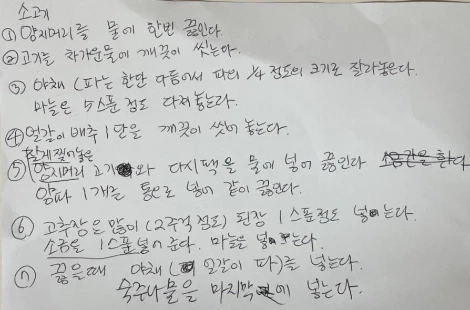 소고기
① 양지머리를 물에 한번 끓인다.
② 고기는 차가운물에 깨끗이 씻는다.
③ 야채 (파는 한단 다듬어서 파의 ¼ 정도의 크기로 잘라놓은다.
마늘은 5스푼 정도 다져놓는다.
④ 얼갈이 배추 1단을 깨끗이 씻어 놓는다.
잘게 찢어놓은
⑤ 양지머리 고기와 다시팩을 물에 넣어 끓인다 소금간을 한다
양파 1개를 통으로 넣어 같이 끓인다.
⑥ 고추장은 많이 (2주걱 정도) 된장 1스푼정도 넣는다.
소금을 1스푼 넣어준다. 마늘은 넣는다.
⑦ 끓을때 야채 (얼갈이 파)를 넣는다.
숙주나물을 마지막에 넣는다.